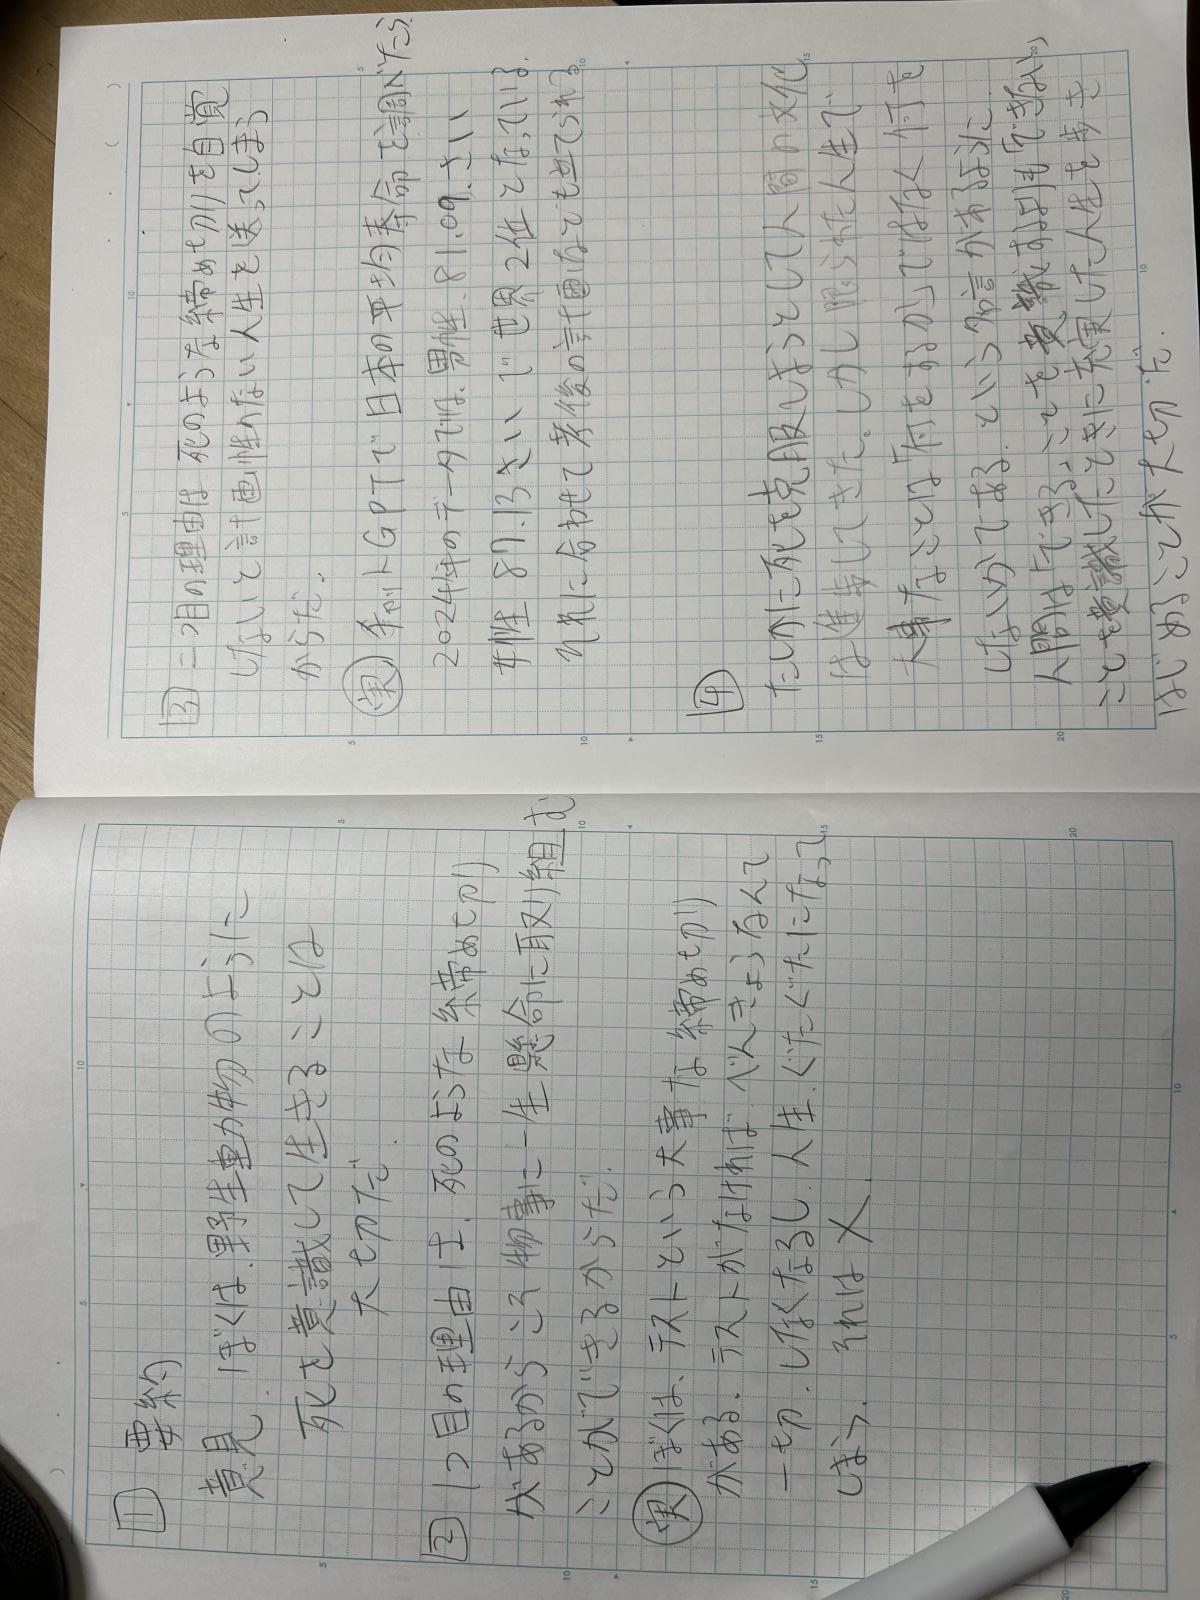 1 要約
意見 ぼくは、野生動物のように
死を意識して生きることは
大切だ
2 1つ目の理由は、死のような締め切り
があるからこそ物事に一生懸命に取り組む
ことができるからだ.
実 ぼくは、テストという大事な締め切り
がある。テストがなければ、べんきょうなんて
一切、しなくなるし、人生、ぐたぐたになって
しまう、それは
3 二つ目の理由は 死のような締め切りを自覚
しないと計画性のない人生を送ってしまう
からだ.
実 チャットGPTで日本の平均寿命を調べたら
2024年のデータでは、男性、81.09、さい
女性 87.13さいで世界2位となっている.
それに合わせて老後の計画なども立てられる
4
たしかに死を克服しようとして人間の文化
は進歩してきた。しかし限られた人生で
大事なことは「何をするかではなく何を
しないかである、という名言があるように
人間はできることを意識するよりもできない
ことを意識したときに充実した人生を歩き
はじめることが大切だ
5
10
15
20
5
10
15
20
5
10
15
20
5
10
15
20